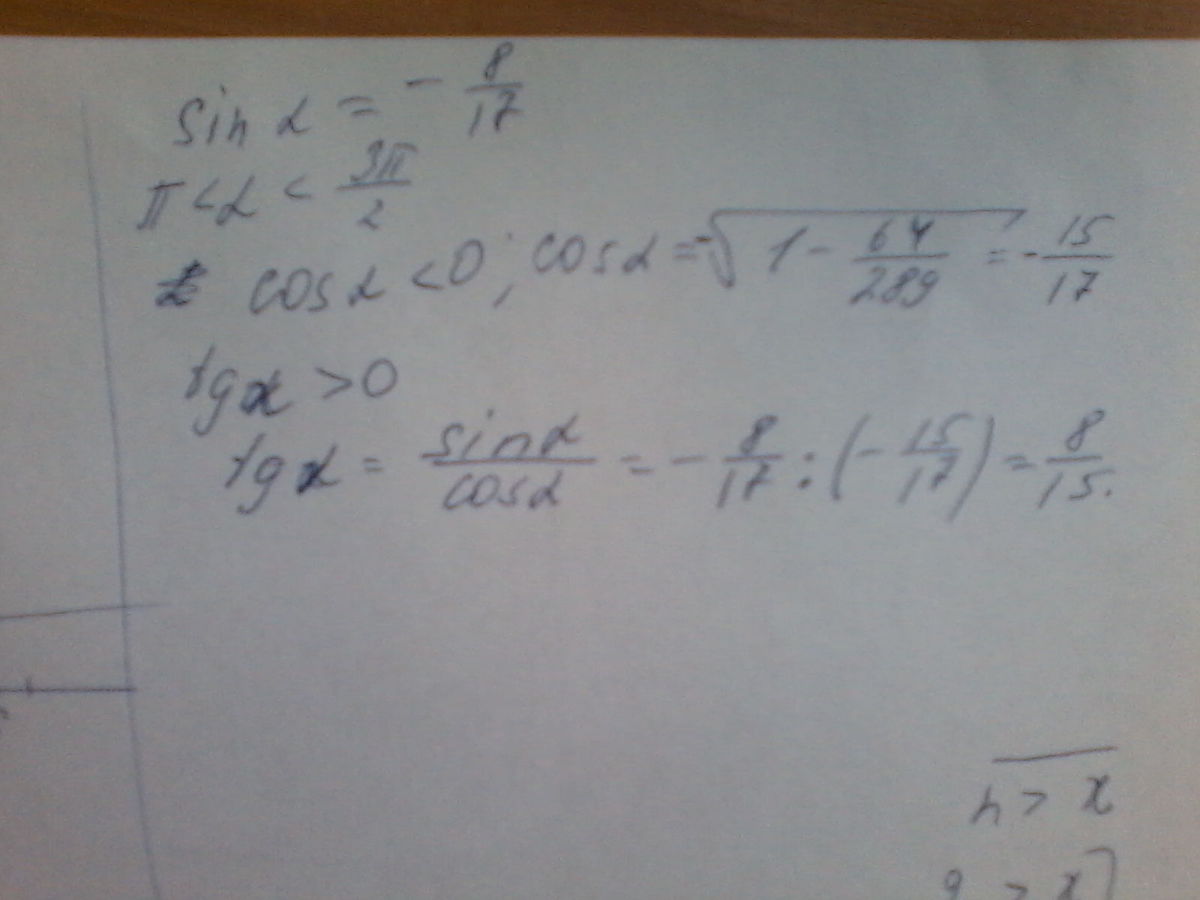 sin α = - 8/17
π < α < 3π/2
cos α < 0; cos α = -√(1 - 64/289) = - 15/17
tg α > 0
tg α = sin α/cos α = - 8/17 : (- 15/17) = 8/15.
n > x